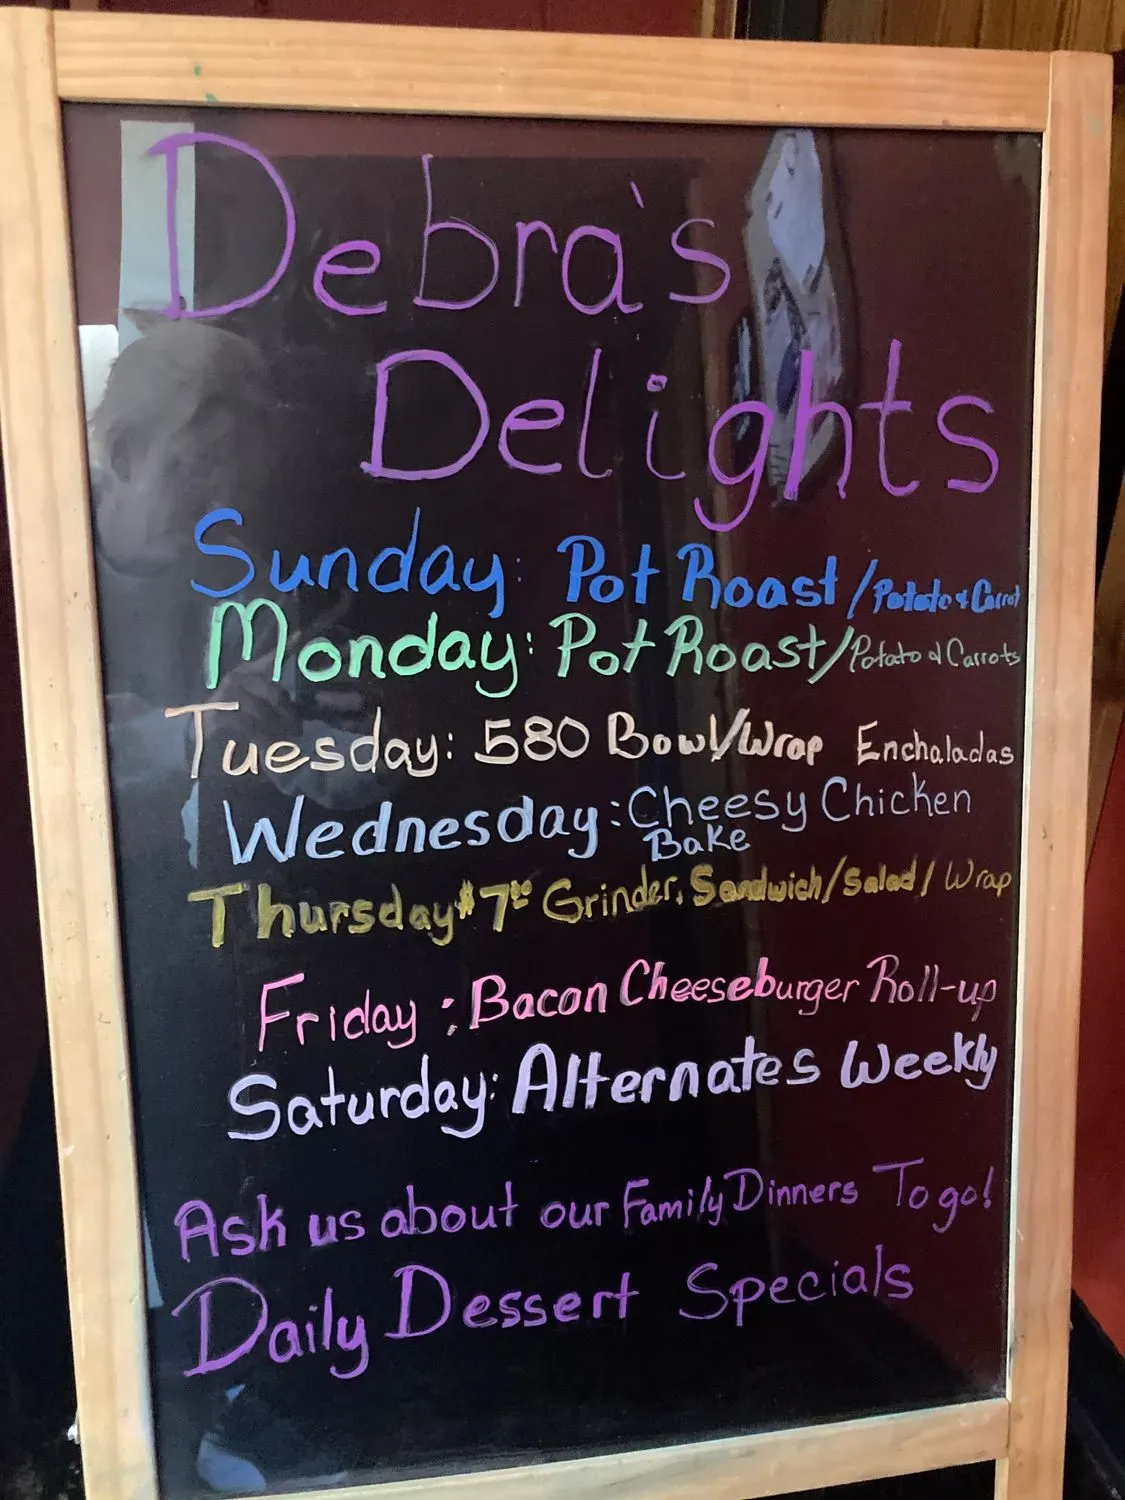 Debra's
Delights
Sunday: Pot Roast/Potato & Carrot
Monday: Pot Roast/Potato & Carrots
Tuesday: 580 Bowl/Wrap Enchaladas
Wednesday: Cheesy Chicken
Bake
Thursday $7⁰⁰ Grinder, Sandwich/Salad/Wrap
Friday: Bacon Cheeseburger Roll-up
Saturday: Alternates Weekly
Ask us about our Family Dinners To go!
Daily Dessert Specials